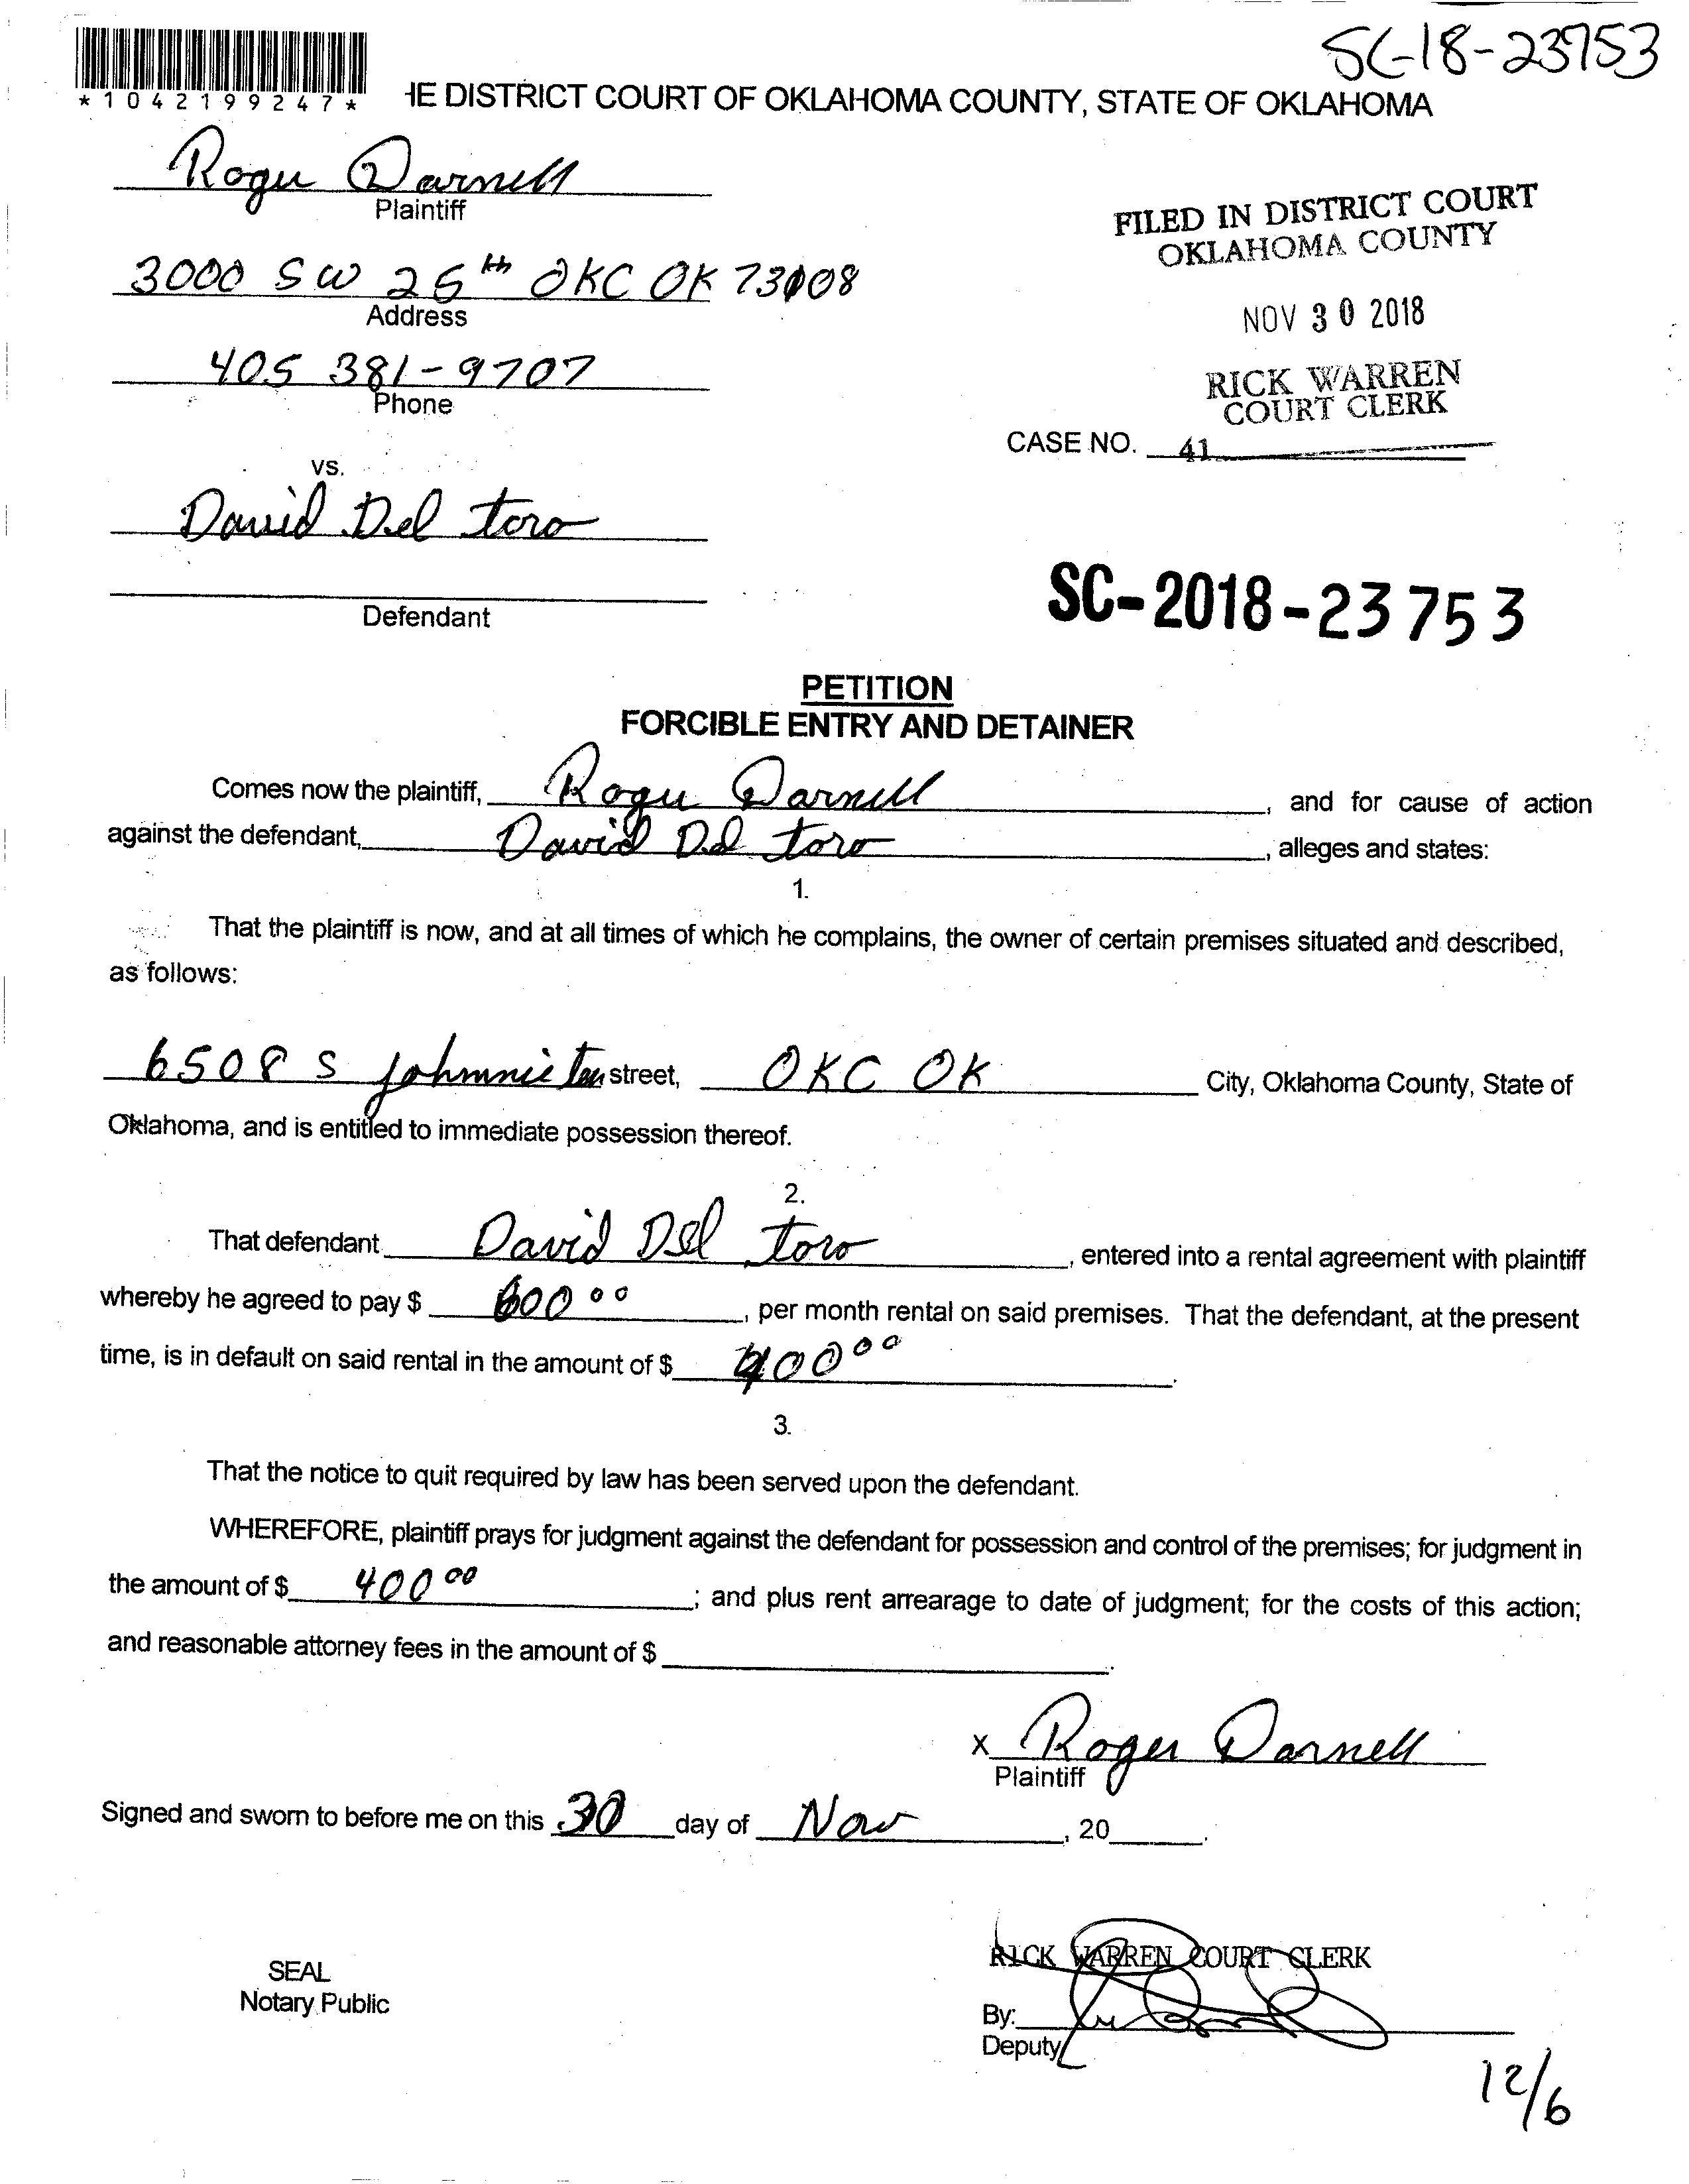 SC-18-23753
*1042199247*
HE DISTRICT COURT OF OKLAHOMA COUNTY, STATE OF OKLAHOMA
Roger Darnell
Plaintiff
FILED IN DISTRICT COURT
OKLAHOMA COUNTY
3000 SW 25th OKC OK 73108
Address
NOV 30 2018
405 381-9707
Phone
RICK WARREN
COURT CLERK
CASE NO. 41
vs.
David Del toro
Defendant
SC-2018-23753
PETITION
FORCIBLE ENTRY AND DETAINER
Comes now the plaintiff, Roger Darnell, and for cause of action
against the defendant, David Del toro, alleges and states:
1.
That the plaintiff is now, and at all times of which he complains, the owner of certain premises situated and described,
as follows:
6508 S Johnnie street, OKC OK City, Oklahoma County, State of
Oklahoma, and is entitled to immediate possession thereof.
2.
That defendant David Del toro, entered into a rental agreement with plaintiff
whereby he agreed to pay $ 600 00, per month rental on said premises. That the defendant, at the present
time, is in default on said rental in the amount of $ 400 00.
3.
That the notice to quit required by law has been served upon the defendant.
WHEREFORE, plaintiff prays for judgment against the defendant for possession and control of the premises; for judgment in
the amount of $ 400 00; and plus rent arrearage to date of judgment; for the costs of this action;
and reasonable attorney fees in the amount of $.
X Roger Darnell
Plaintiff
Signed and sworn to before me on this 30 day of Nov, 20.
RICK WARREN COURT CLERK
SEAL
Notary Public
By:
Deputy
12/6